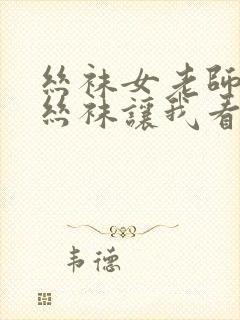 絲袜女老師
絲袜讓我看
韦德